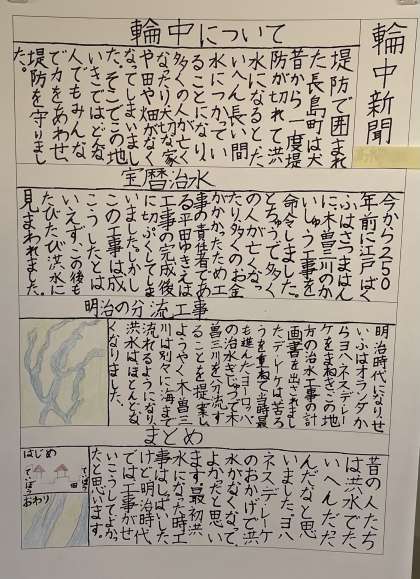 輪中新聞
輪中について
堤防で囲まれ
た長島町は大
昔から一度堤
防が切れて洪
水になるとた
いへん長い間
水につかってい
ることになり、
多くの人が亡く
なったり大切な家
や田や畑がなく
なってしまいまし
た。そこでこの地
いきではどんな
人でもみんな
で力をあわせ、
堤防を守りまし
た。
宝暦治水
今から250
年前に江戸ばく
ふはさつまはん
に木曽三川のか
いしゅう工事を
命令しました。
とちゅうで多く
の人が亡くなっ
たり多くのお金
がかかったため工
事の責任者であ
る平田ゆきえは
工事の完成後
に切ぷくしてしま
いました。しかし
この工事は成
こうしたとは
いえず、この後も
たびたび洪水に
見まわれました。
明治の分流工事
明治時代になり、せ
いふはオランダか
らヨハネスデレー
ケをまねきこの地
方の治水工事の計
画書を出させまし
た。デレーケは苦ろ
うを重ねて当時最
も進んだヨーロッパ
の治水ぎじゅつで木
曽三川を分流す
ることを提案し
ようやく木曽三
川は別々に海まで
流れるようになり、
洪水はほとんどな
くなりました。
まとめ
昔の人たち
は洪水でた
いへんだった
んだなと思
いました。ヨハ
ネスデレーケ
のおかげで洪
水がなくなって
よかったと思い
ます。最初洪
水になった時工
事はしっぱいした
けど明治時代
では工事がせ
いこうしてよかっ
たと思います。
はじめ
ていぼう
田
ていぼう
おわり